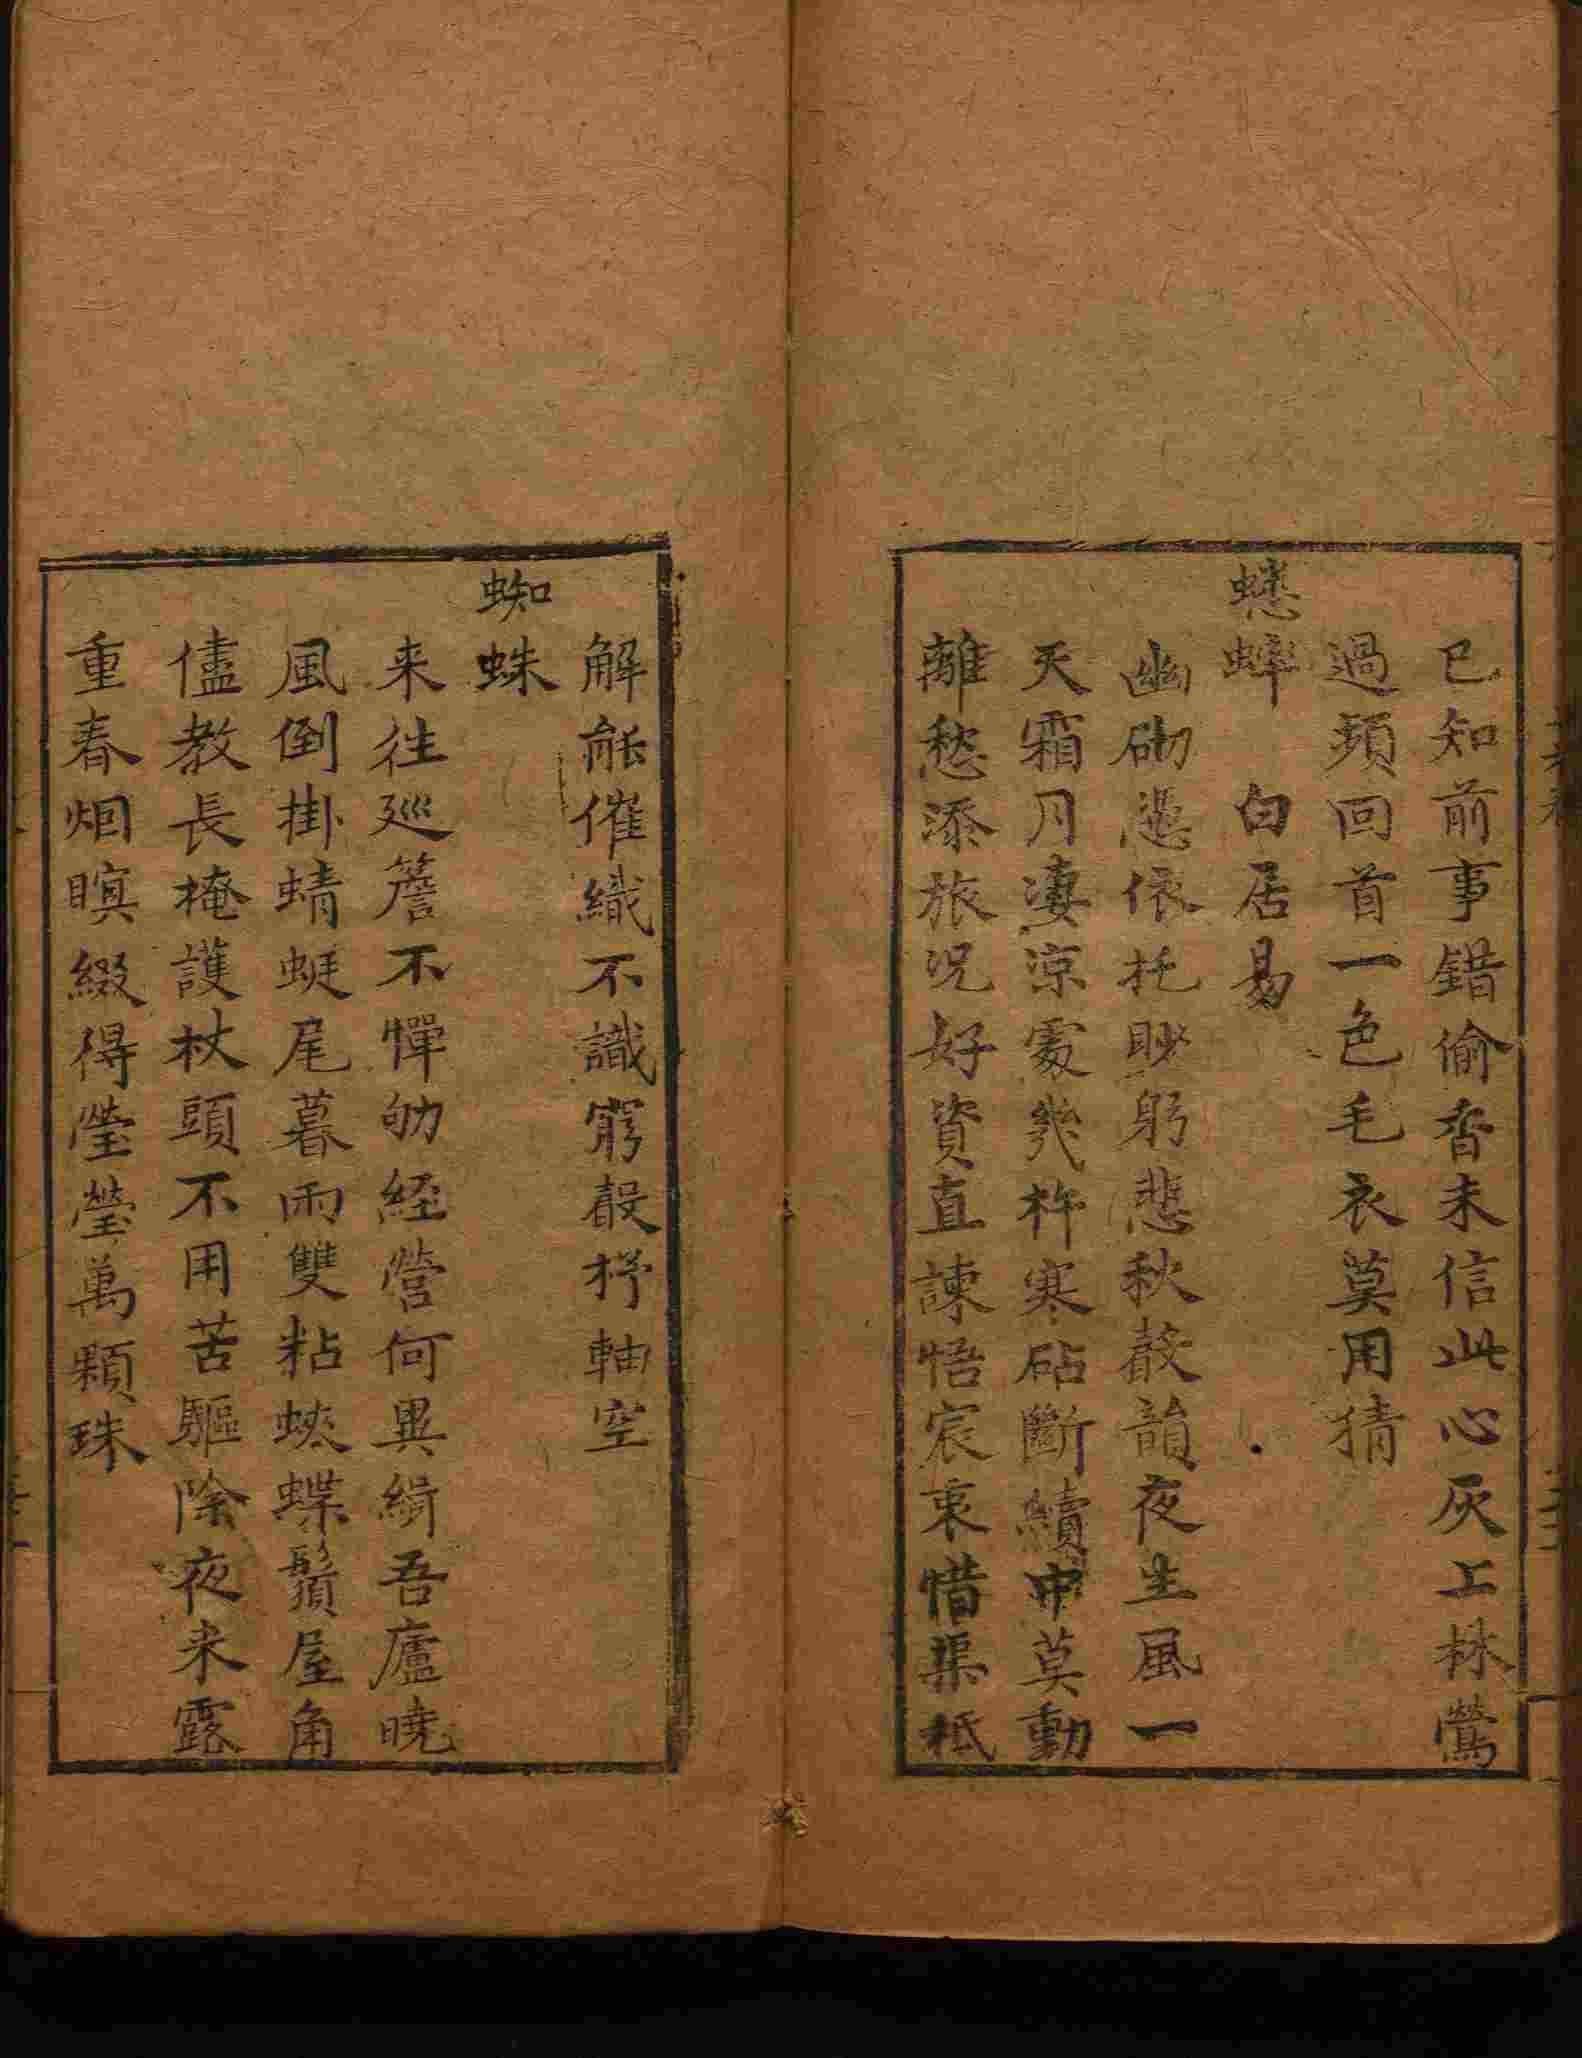 已知前事錯偷香未信此心灰上林鶯
過頻回首一色毛衣莫用猜
蟋蟀 白居易
幽砌憑依托眇躬悲秋聲韻夜生風一
天霜月凄涼處幾杵寒砧斷續中莫動
離愁添旅况好資直諫悟宸衷惜渠秪
解能催織不識窮檓杼軸空
蜘蛛
来往巡簷不憚劬経營何異緝吾廬曉
風倒掛蜻蜓尾暮雨雙粘蛺蝶鬚屋角
儘教長掩護杖頭不用苦驅除夜来露
重春烟暝綴得瑩瑩萬顆珠